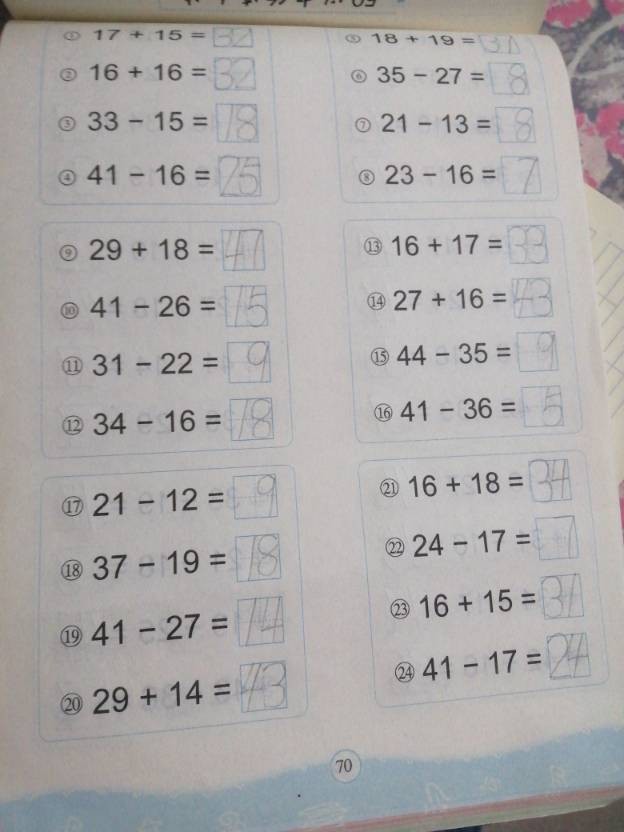 ① 17 + 15 = 32
② 16 + 16 = 32
③ 33 - 15 = 18
④ 41 - 16 = 25
⑤ 18 + 19 = 37
⑥ 35 - 27 = 8
⑦ 21 - 13 = 8
⑧ 23 - 16 = 7
⑨ 29 + 18 = 47
⑩ 41 - 26 = 15
⑪ 31 - 22 = 9
⑫ 34 - 16 = 18
⑬ 16 + 17 = 33
⑭ 27 + 16 = 43
⑮ 44 - 35 = 9
⑯ 41 - 36 = 5
⑰ 21 - 12 = 9
⑱ 37 - 19 = 18
⑲ 41 - 27 = 14
⑳ 29 + 14 = 43
㉑ 16 + 18 = 34
㉒ 24 - 17 = 7
㉓ 16 + 15 = 31
㉔ 41 - 17 = 24
70